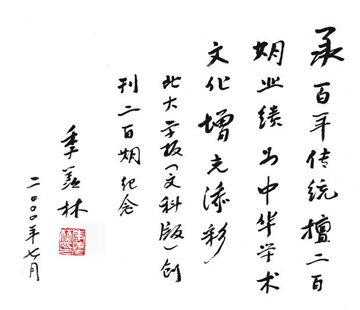 承百年传统擅二百
期业绩为中华学术
文化增光添彩
北大学报(文科版)创
刊二百期纪念
季羡林
二〇〇〇年七月